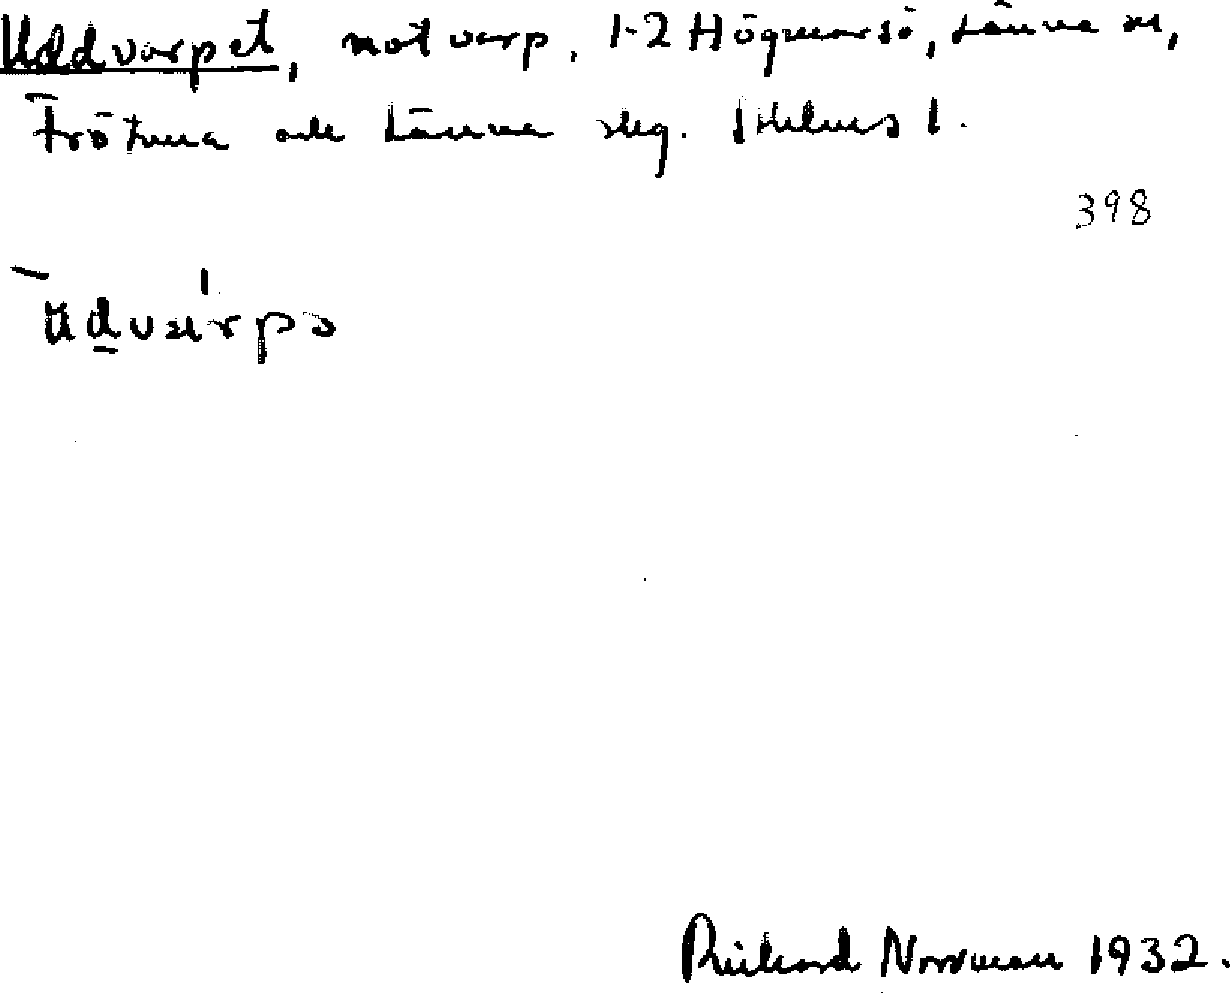 Uddvarpet, notvarp, 1-2 Högmarsö, Länna sn,
Frötuna och Länna skg. Sthlms l.
398
udvarpə
Rickard Norrman 1932.